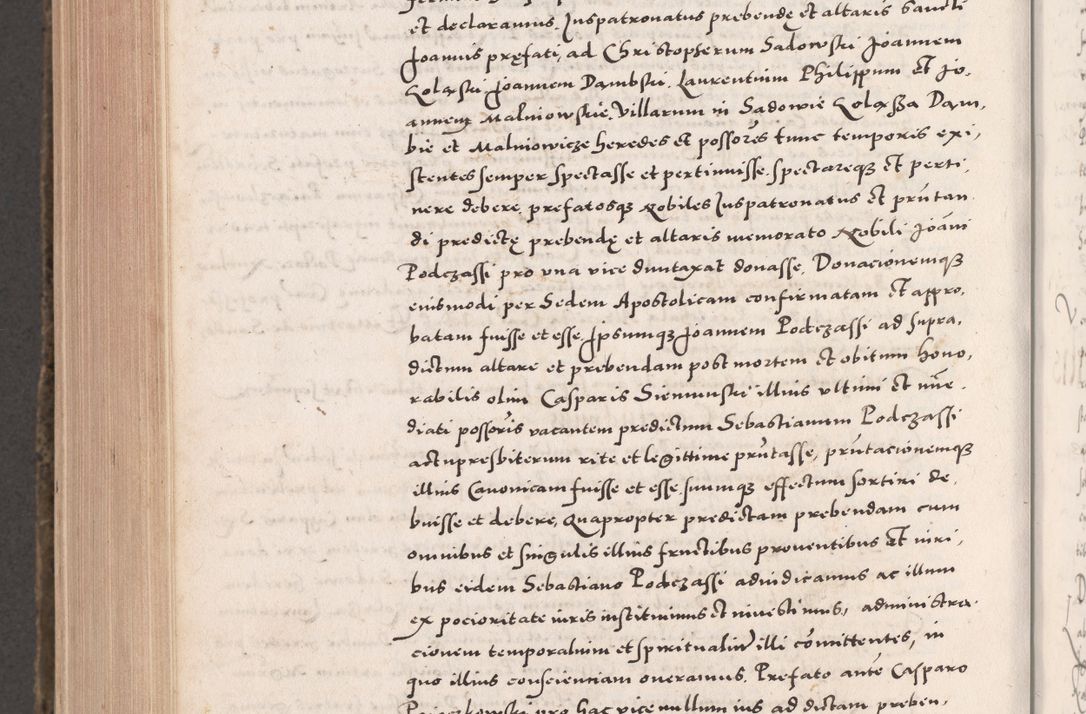 et declaramus. Juspatronatus prebendę et altaris Sancti
Joannis pręfati, ad Christopherum Sadowski Joannem
Goląski Joannem Dambski. Laurentium Philippum et Jo,
annem Malniowskie. Villarum in Sadowie Goląsza Dam,
bie et Malniowicze heredes et possores tunc temporis exi,
stentes semper spectasse et pertinuisse. spectareqȝ et perti,
nere debere, prefatosqȝ Nobiles Juspatronatus et prñtan
di predictę prebendę et altaris memorato Nobili Joãni
Podczassi pro vna vice duntaxat donasse, Donacionemqȝ
eiusmodi per Sedem Apostolicam confirmatam et appro,
batam fuisse et esse. Ipsumqȝ Joannem Podczassi ad supra,
dictum altare et prebendam post mortem et obitum hono,
rabilis olim Casparis Siemuński illius vltimi et im̃e,
diati possoris vacantem predictum Sebastianum Podczassi
actupresbiterum rite et legittime prñtasse, prñtacionemqȝ
illius Canonicam fuisse et esse. suumqȝ effectum sortiri de,
buisse et debere, Quapropter predictam prebendam cum
omnibus et singulis illius fructibus prouentibus et iuri,
bus eidem Sebastiano Podczassi adiudicamus ac illum
ex pocioritate iuris instituimus et inuestimus, administra
cionem temporalium et spiritualium illi com̃ittentes, in
quo illius conscienciam oneramus. Prefato ante Casparo
pro hac vice nullum ius ad dictam preben,